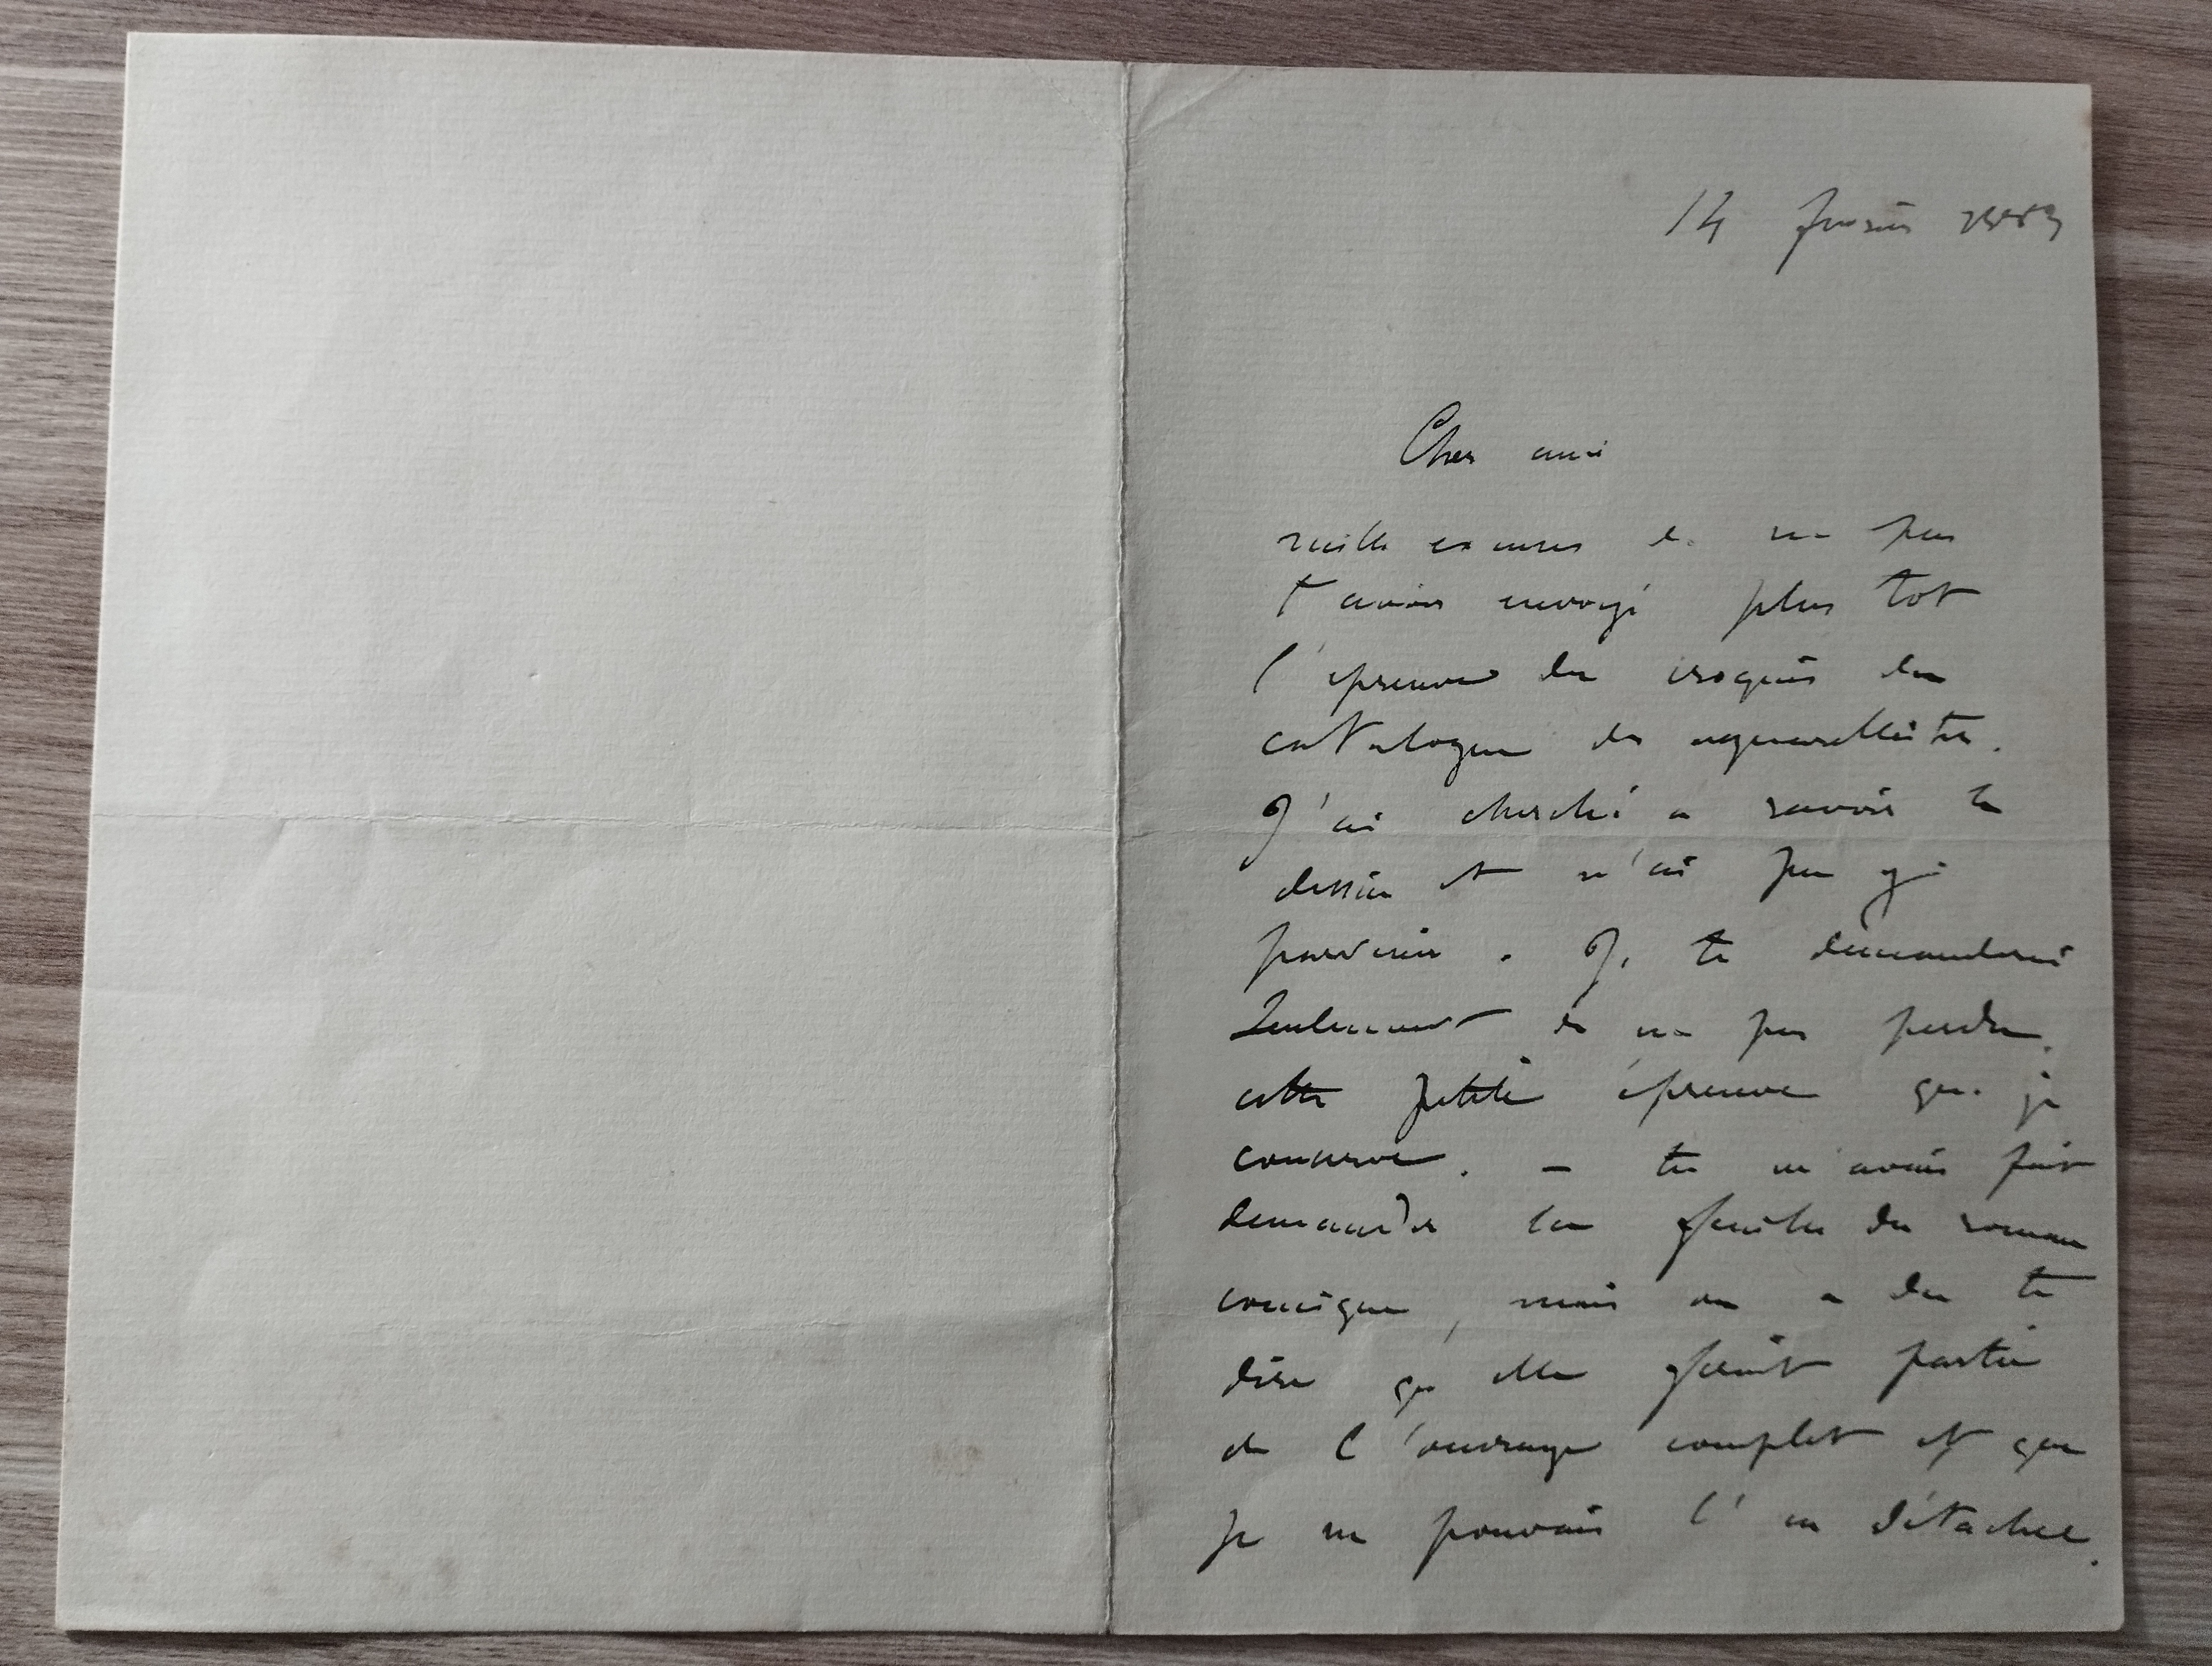 14 février 1883
Cher ami
mille excuses de ne pas
t'avoir envoyé plus tot
l'épreuve du croquis du
catalogue des aquarellistes.
J'ai cherché a ravoir le
dessin et n'ai pu y
parvenir. Je te demanderai
Seulement de ne pas perdre
cette petite épreuve que je
conserve. – tu m'avais fait
demander la feuille du roman
comique, mais on a du te
dire qu'elle faisait partie
de l'ouvrage complet et que
je ne pouvais l'en détacher.